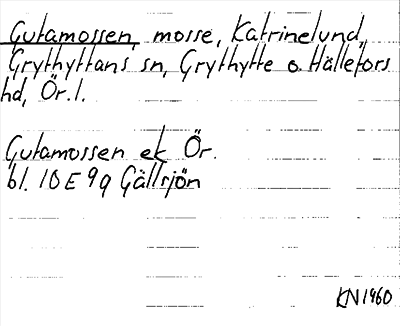 Gutamossen, mosse, Katrinelund,
Grythyttans sn, Grythytte o. Hällefors
hd, Ör. l.
Gutamossen ek Ör.
bl. 10E 9g Gällsjön
KN1960